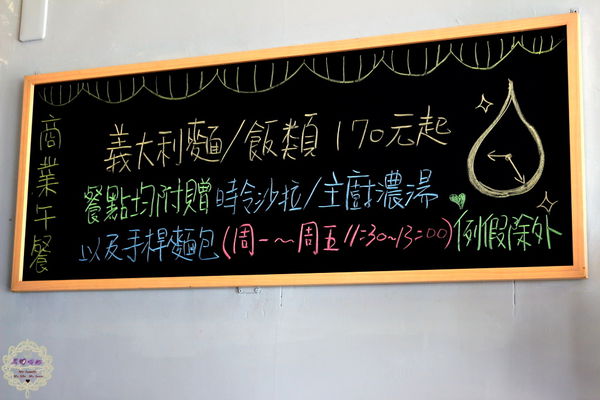 商業午餐
義大利麵/飯類 170元起
餐點均附贈時令沙拉/主廚濃湯
以及手桿麵包(周一~周五11:30~13:00)例假除外